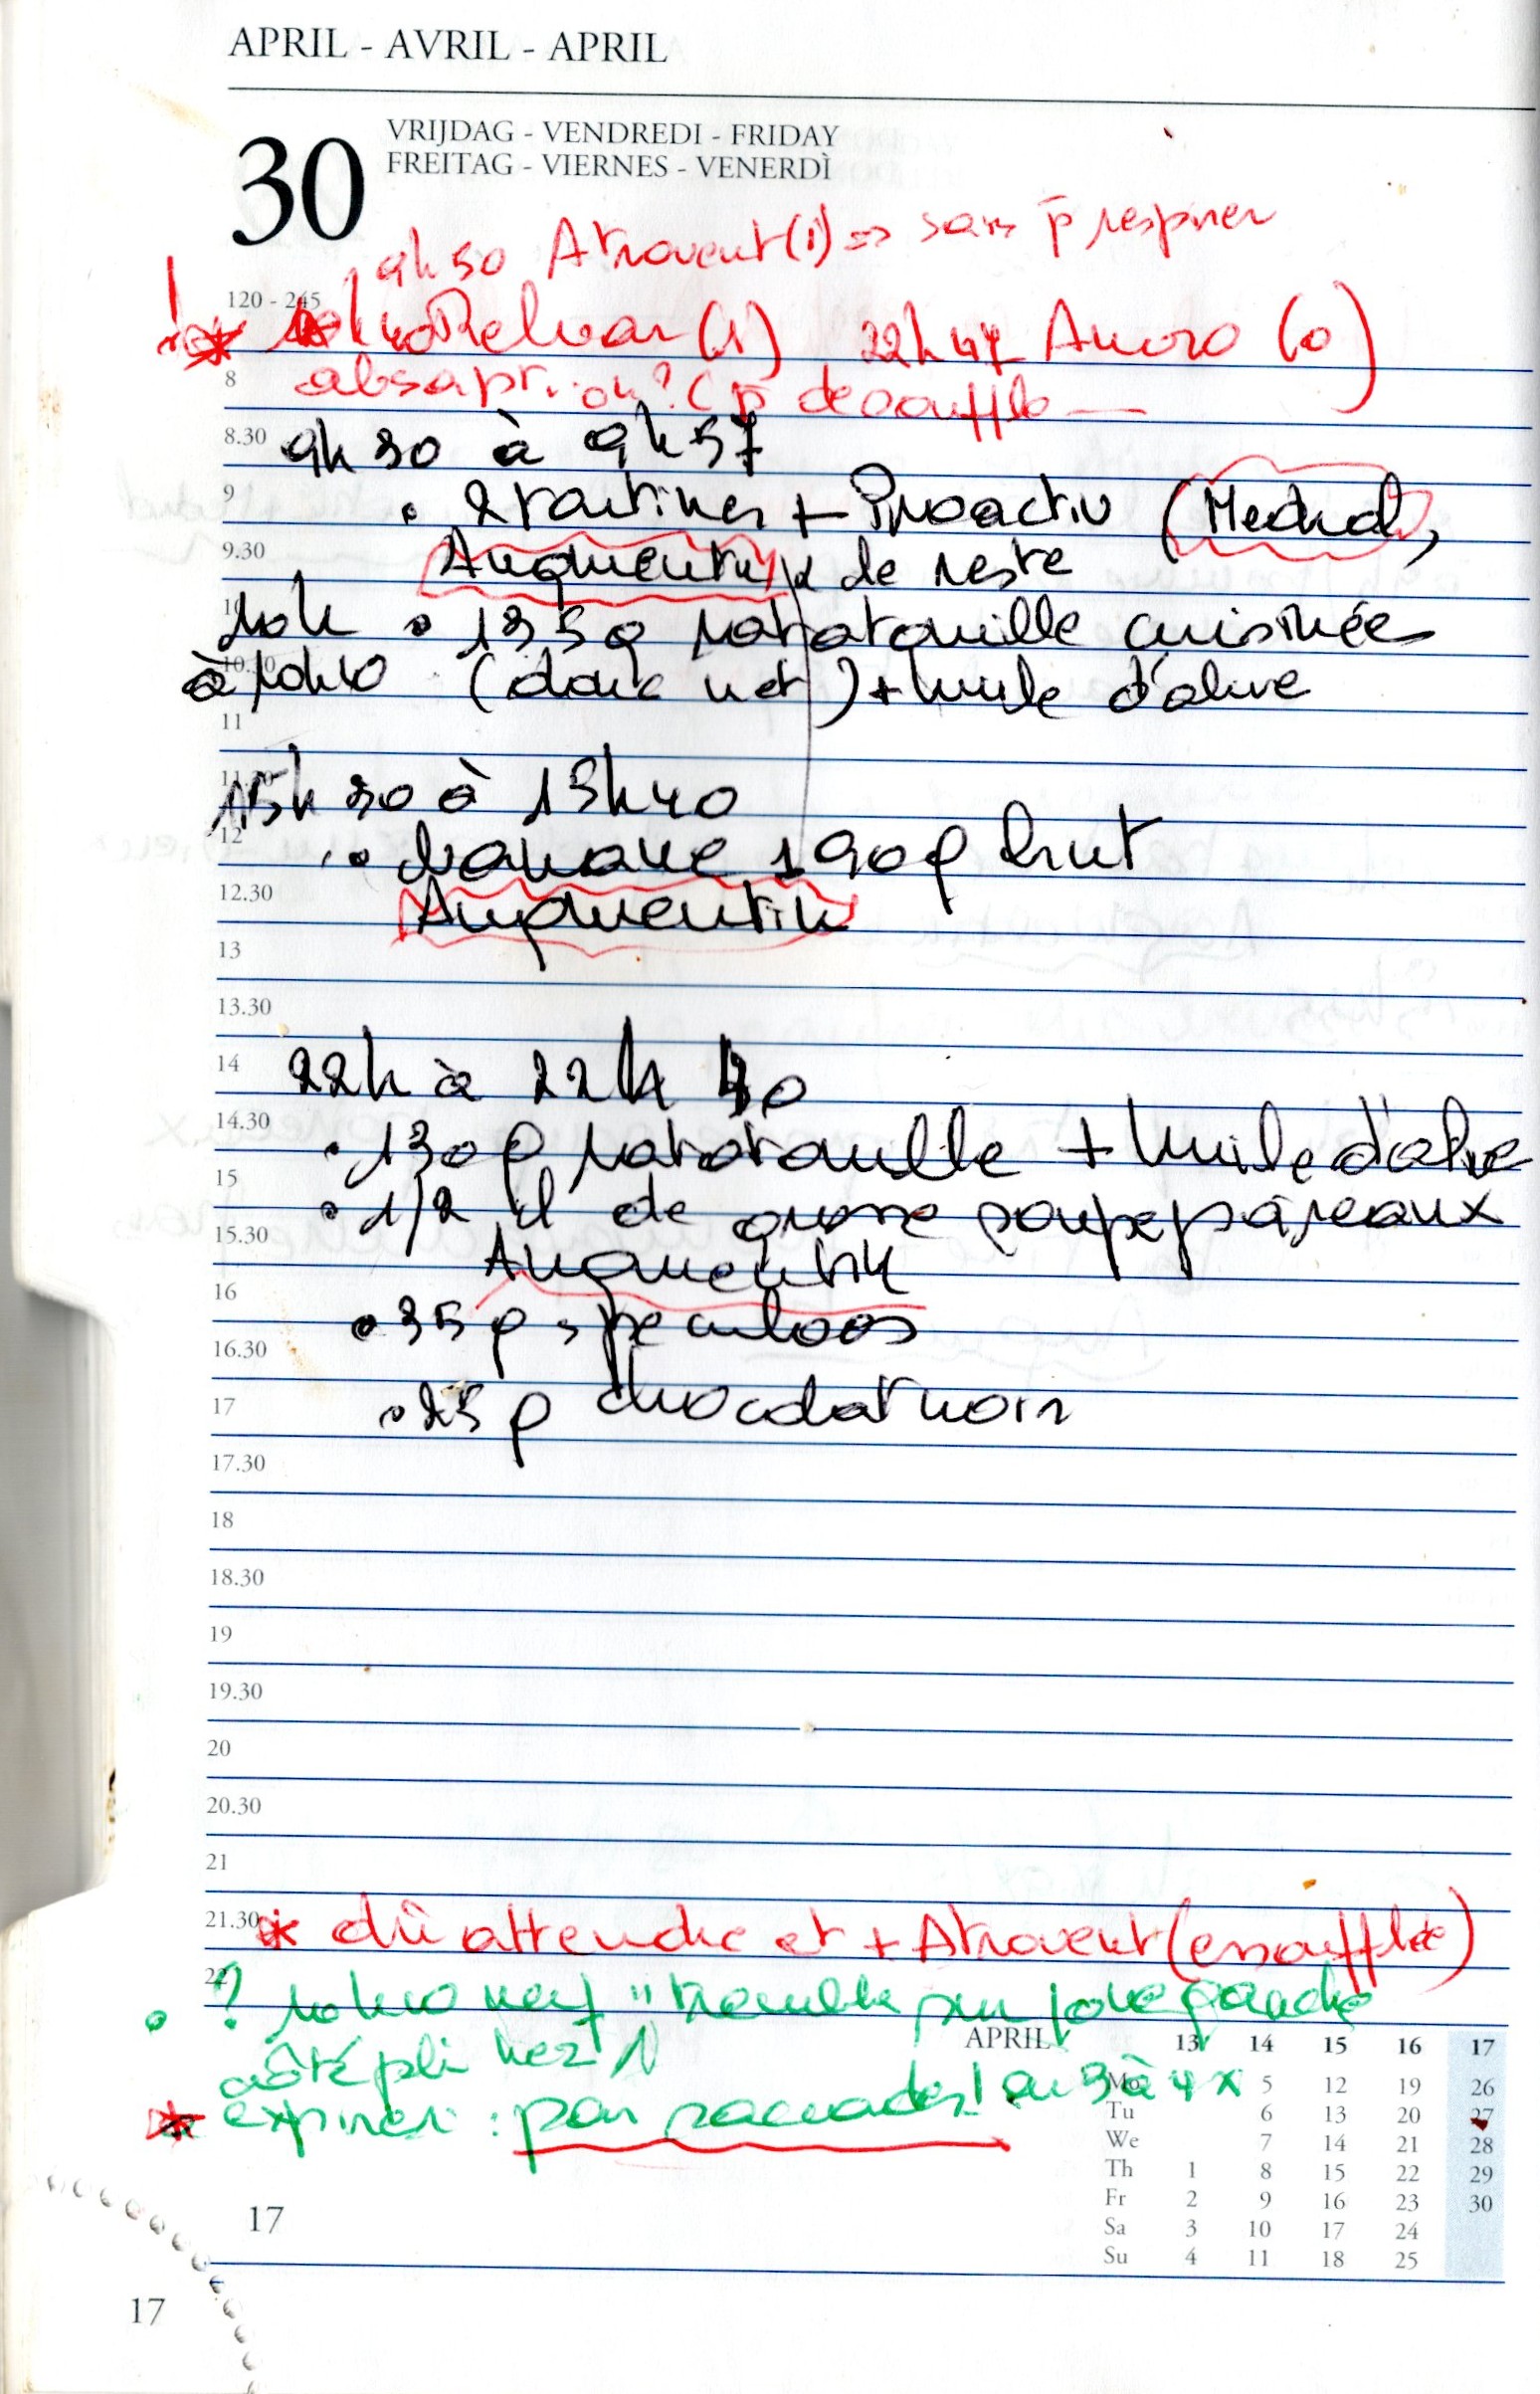 APRIL - AVRIL - APRIL
30
VRIJDAG - VENDREDI - FRIDAY
FREITAG - VIERNES - VENERDÌ
9h50 Atrovent (1) => sans p respirer
120 - 245
! * Relvar (1) 22h47 (0)
8
absorption? (p de souffle
8.30
9h30 à 9h57
9
• 2 tartines + Proactiv (Medrol,
9.30
Augmentin de reste
10
10h • 135g ratatouille cuisinée
10.30
à 10h40 (donc net) + huile d'olive
11
11.30
15h30 à 15h40
12
• banane 190g brut
12.30
Augmentin
13
13.30
14
22h à 22h40
14.30
• 130g ratatouille + huile d'olive
15
• 1/2 de grosse
15.30
Augmentin
16
• 35g speculoos
16.30
17
• 25g chocolat noir
17.30
18
18.30
19
19.30
20
20.30
21
21.30
* dû attendre et + Atrovent (essoufflée)
22
• ? joue gauche
côté pli nez
* expirer : par saccades! en 3 à 4 x
APRIL 13 14 15 16 17
Mo 5 12 19 26
Tu 6 13 20 27
We 7 14 21 28
Th 1 8 15 22 29
Fr 2 9 16 23 30
Sa 3 10 17 24
Su 4 11 18 25
17
17